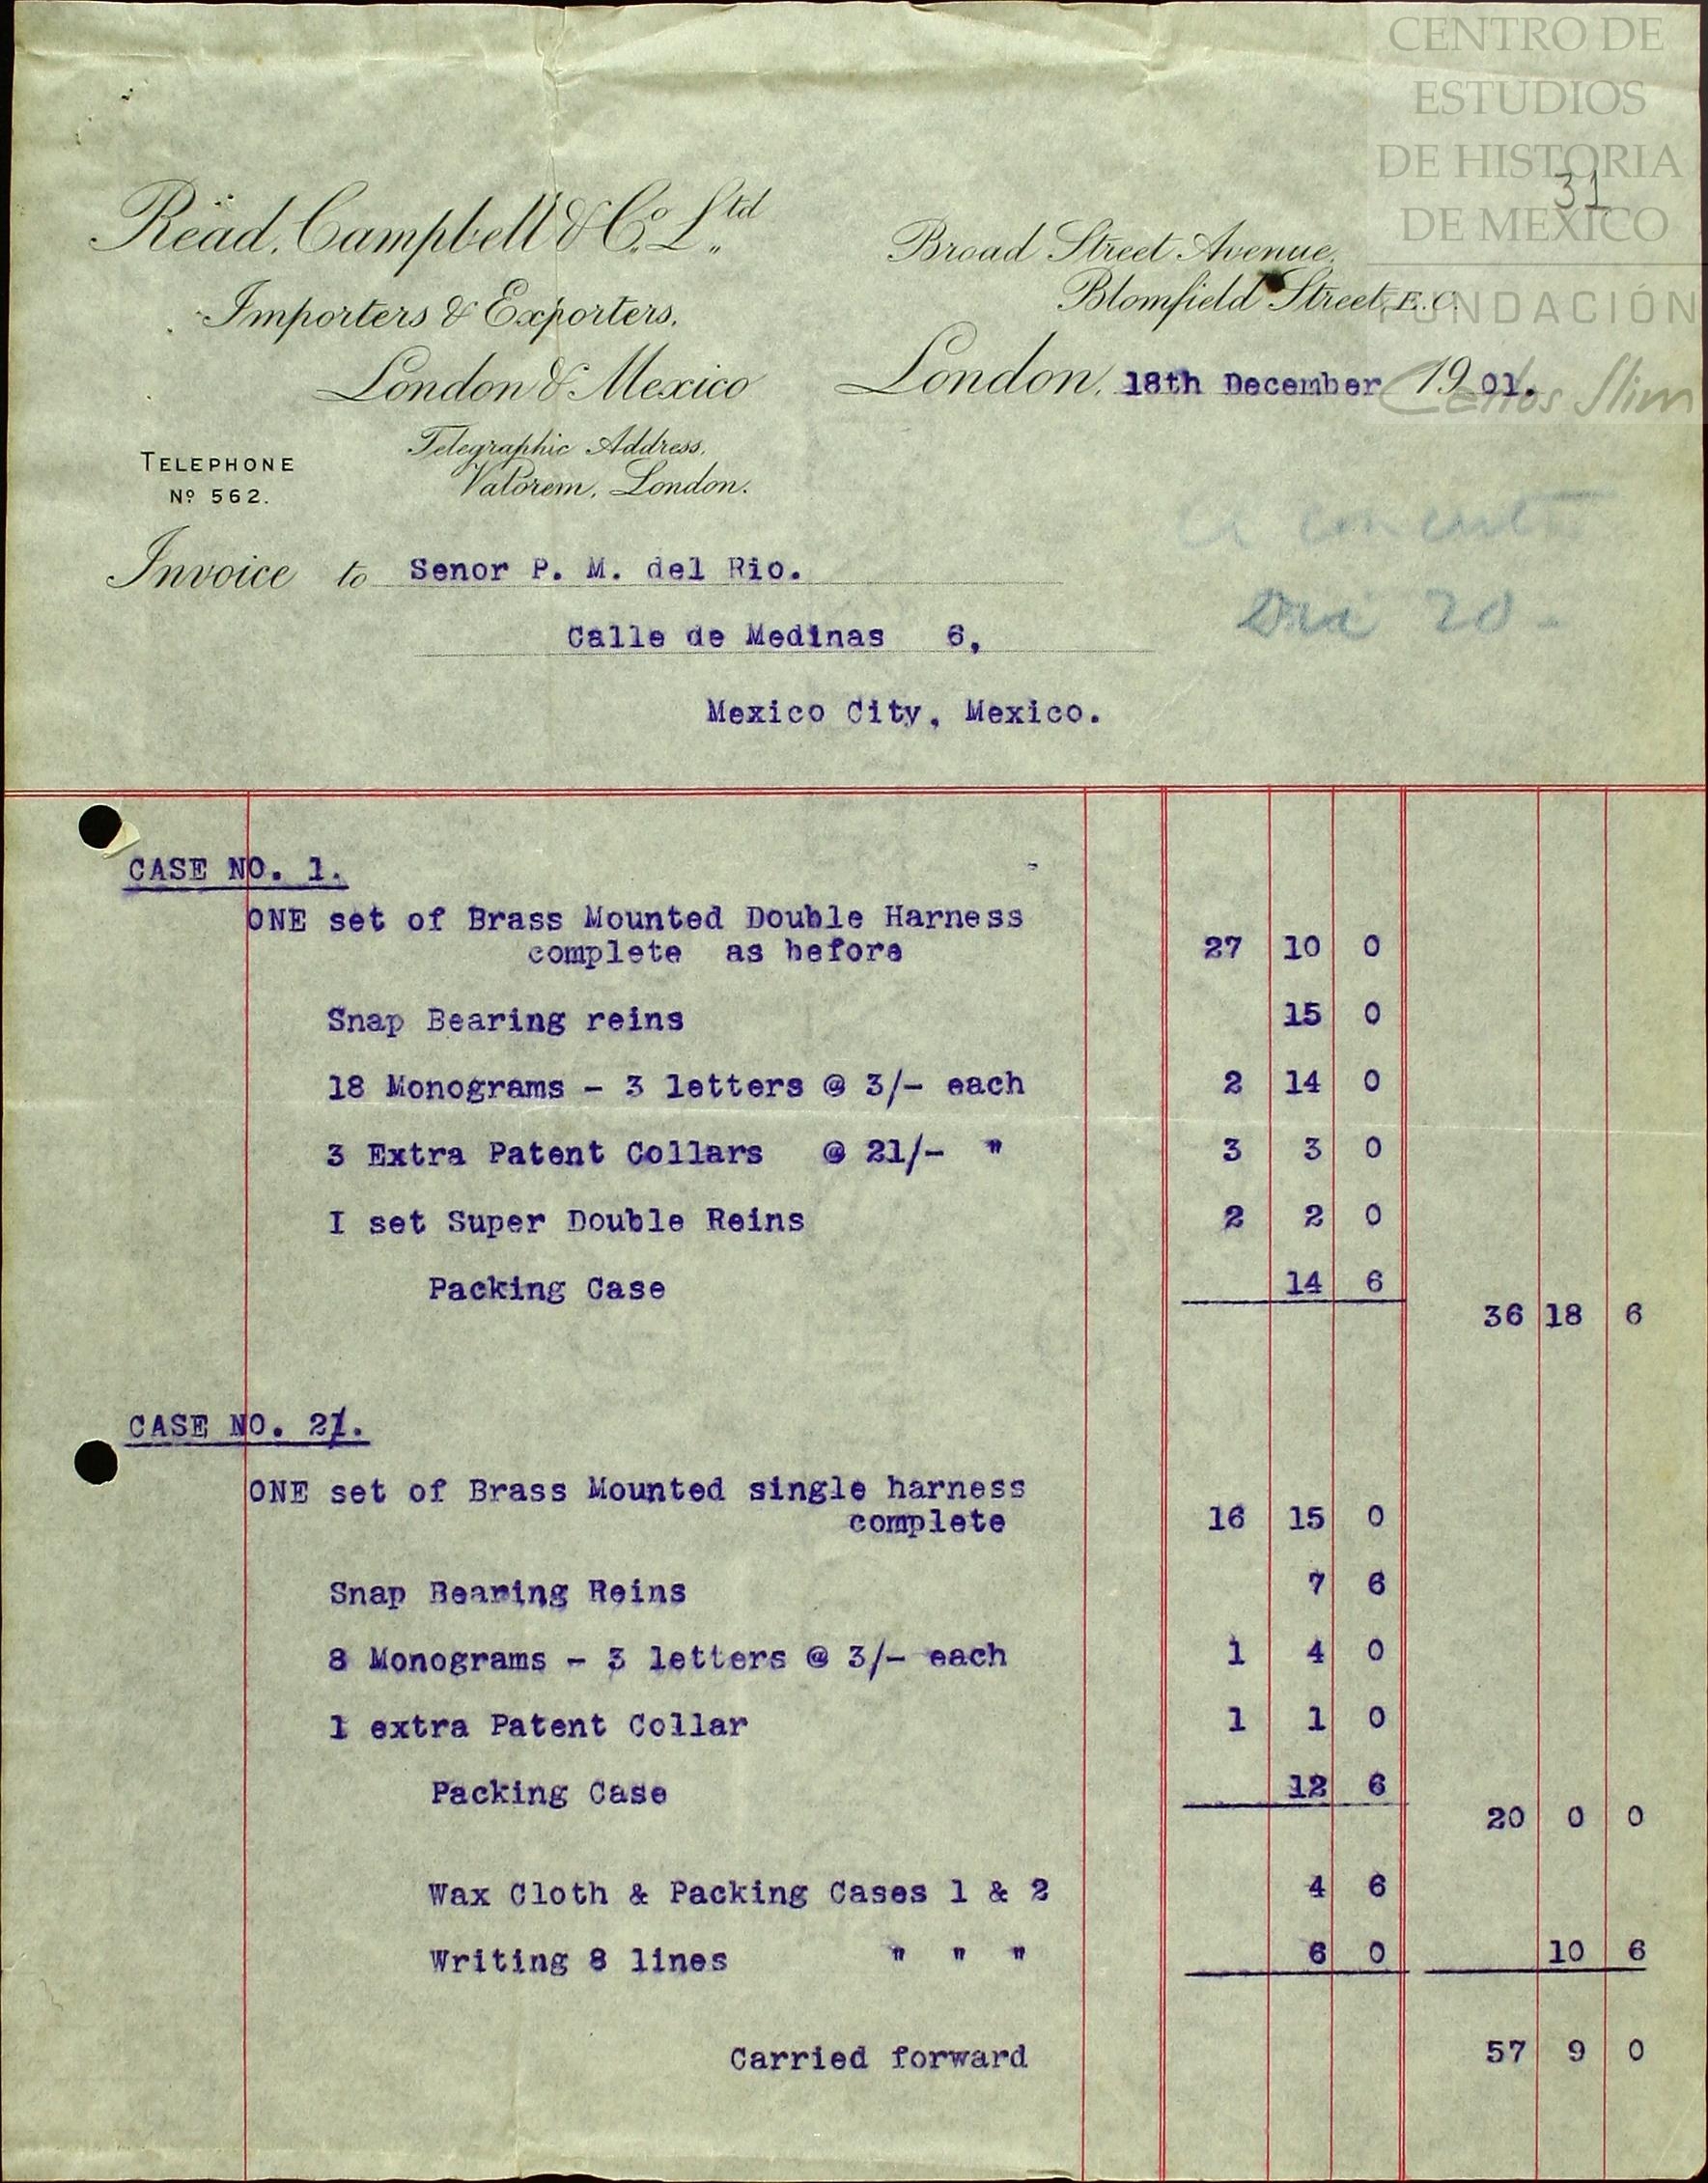 CENTRO DE
ESTUDIOS
DE HISTORIA
DE MEXICO
FUNDACIÓN
Carlos Slim
31
Read, Campbell & Co. Ltd
Importers & Exporters,
London & Mexico
Telegraphic Address,
Valorem, London.
TELEPHONE
No 562.
Broad Street Avenue,
Blomfield Street, E.C.
London, 18th December 1901.
Invoice to Senor P. M. del Rio.
Calle de Medinas 6,
Mexico City, Mexico.
Dia 20.
CASE NO. 1.
ONE set of Brass Mounted Double Harness
complete as before 27 10 0
Snap Bearing reins 15 0
18 Monograms - 3 letters @ 3/- each 2 14 0
3 Extra Patent Collars @ 21/- " 3 3 0
I set Super Double Reins 2 2 0
Packing Case 14 6
36 18 6
CASE NO. 2.
ONE set of Brass Mounted single harness
complete 16 15 0
Snap Bearing Reins 7 6
8 Monograms - 3 letters @ 3/- each 1 4 0
1 extra Patent Collar 1 1 0
Packing Case 12 6
20 0 0
Wax Cloth & Packing Cases 1 & 2 4 6
Writing 8 lines " " " 6 0 10 6
Carried forward 57 9 0